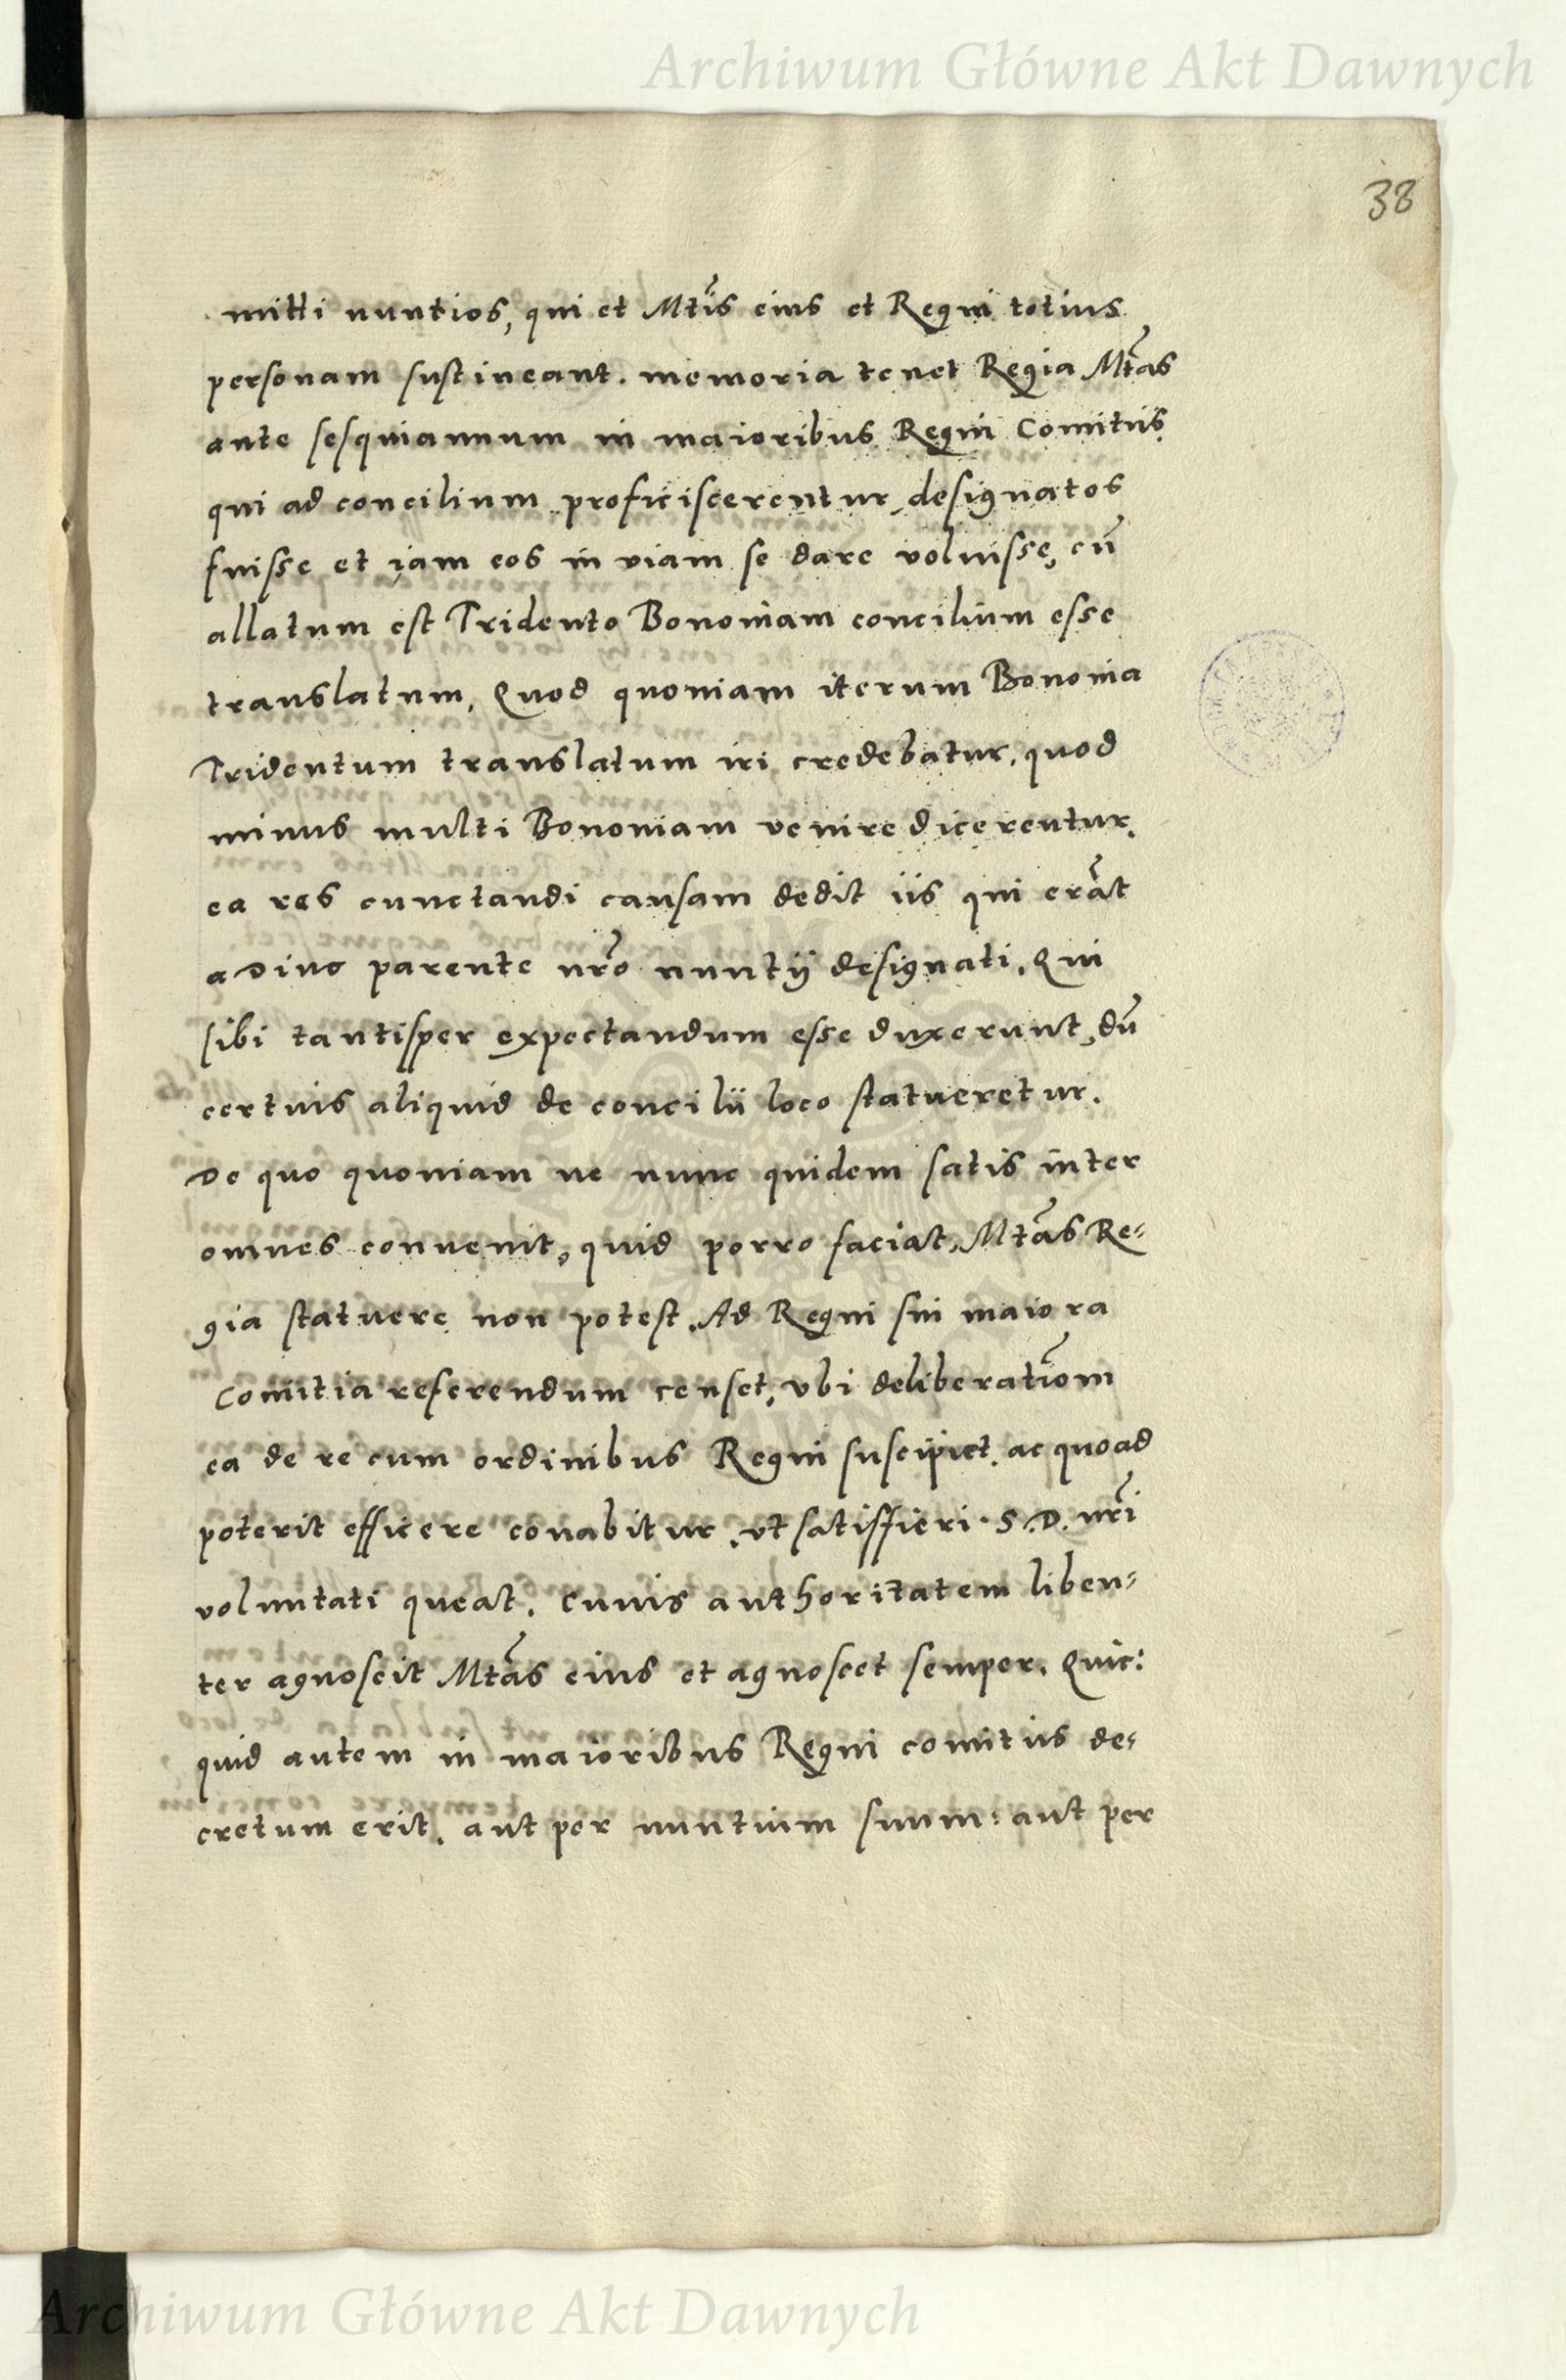 Archiwum Główne Akt Dawnych
38
mitti nuntios, qui et Mtis eius et Regni totius
personam sustineant. memoria tenet Regia Mtas
ante sesquiannum in maioribus Regni Comitiis
qui ad concilium proficiscerentur, designatos
fuisse et iam eos in viam se dare voluisse, cū
allatum est Tridento Bononiam concilium esse
translatum, Quod quoniam iterum Bononia
Tridentum translatum iri credebatur, quod
minus multi Bononiam venire dicerentur.
ea res cunctandi causam dedit iis qui erāt
a Divo parente nr̃o nuntij designati. Qui
sibi tantisper expectandum esse duxerunt, dū
certius aliquid de concilii loco statueretur.
De quo quoniam ne nunc quidem satis inter
omnes convenit, quid porro faciat, Mtas Re-
gia statuere non potest. Ad Regni sui maiora
Comitia referendum censet, vbi deliberatiom
ea de re cum ordinibus Regni suscipiet. ac quoad
poterit efficere conabitur, vt satisfieri S. D. nr̃i
voluntati queat. Cuius authoritatem liben-
ter agnoscit Mtas eius et agnoscet semper. Quic:
quid autem in maioribus Regni comitiis de-
cretum erit, aut per nuntium suum: aut per
Archiwum Główne Akt Dawnych